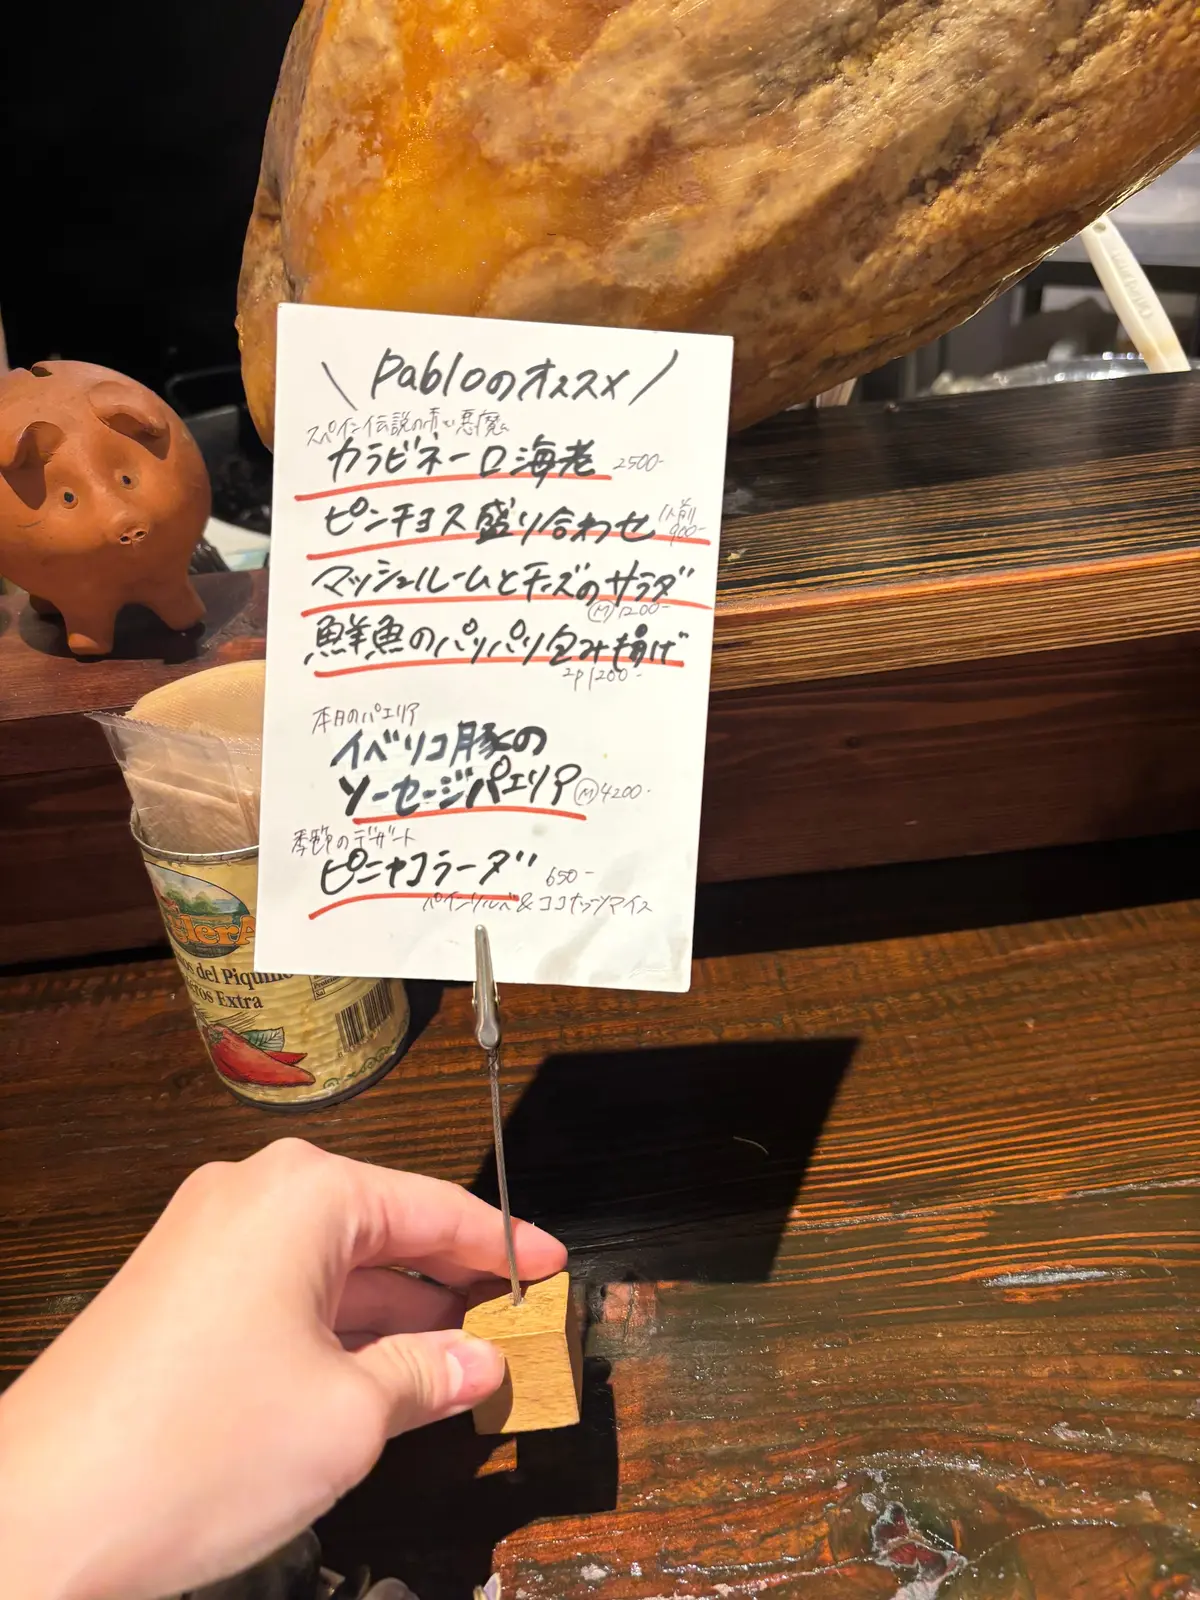 \ Pabloのオススメ /
スペイン伝説の赤い悪魔
カラビネーロ海老 2500-
ピンチョス盛り合わせ 1人前 900-
マッシュルームとチーズのサラダ
Ⓜ1200-
鮮魚のパリパリ包み揚げ
2P 1200-
本日のパエリア
イベリコ豚の
ソーセージパエリア Ⓜ4200-
季節のデザート
ピニャコラーダ 650-
パインソルベ&ココナッツアイス
del Piquillo
Extra